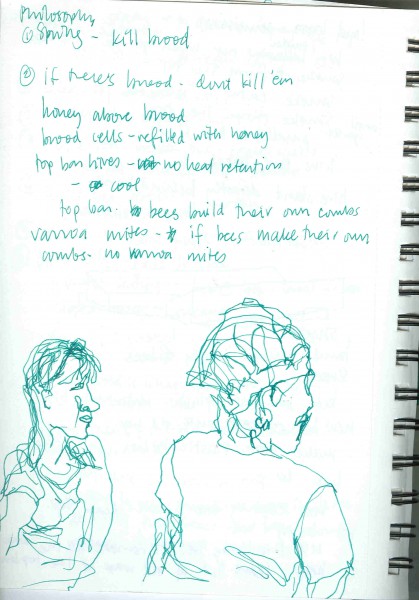 Philosophy
① Spring - kill brood
② if there's brood - dont kill 'em
honey above brood
brood cells - refilled with honey
top bar hives - no heat retention
- cool
top bar. bees build their own combs
varroa mites - if bees make their own
combs - no varroa mites